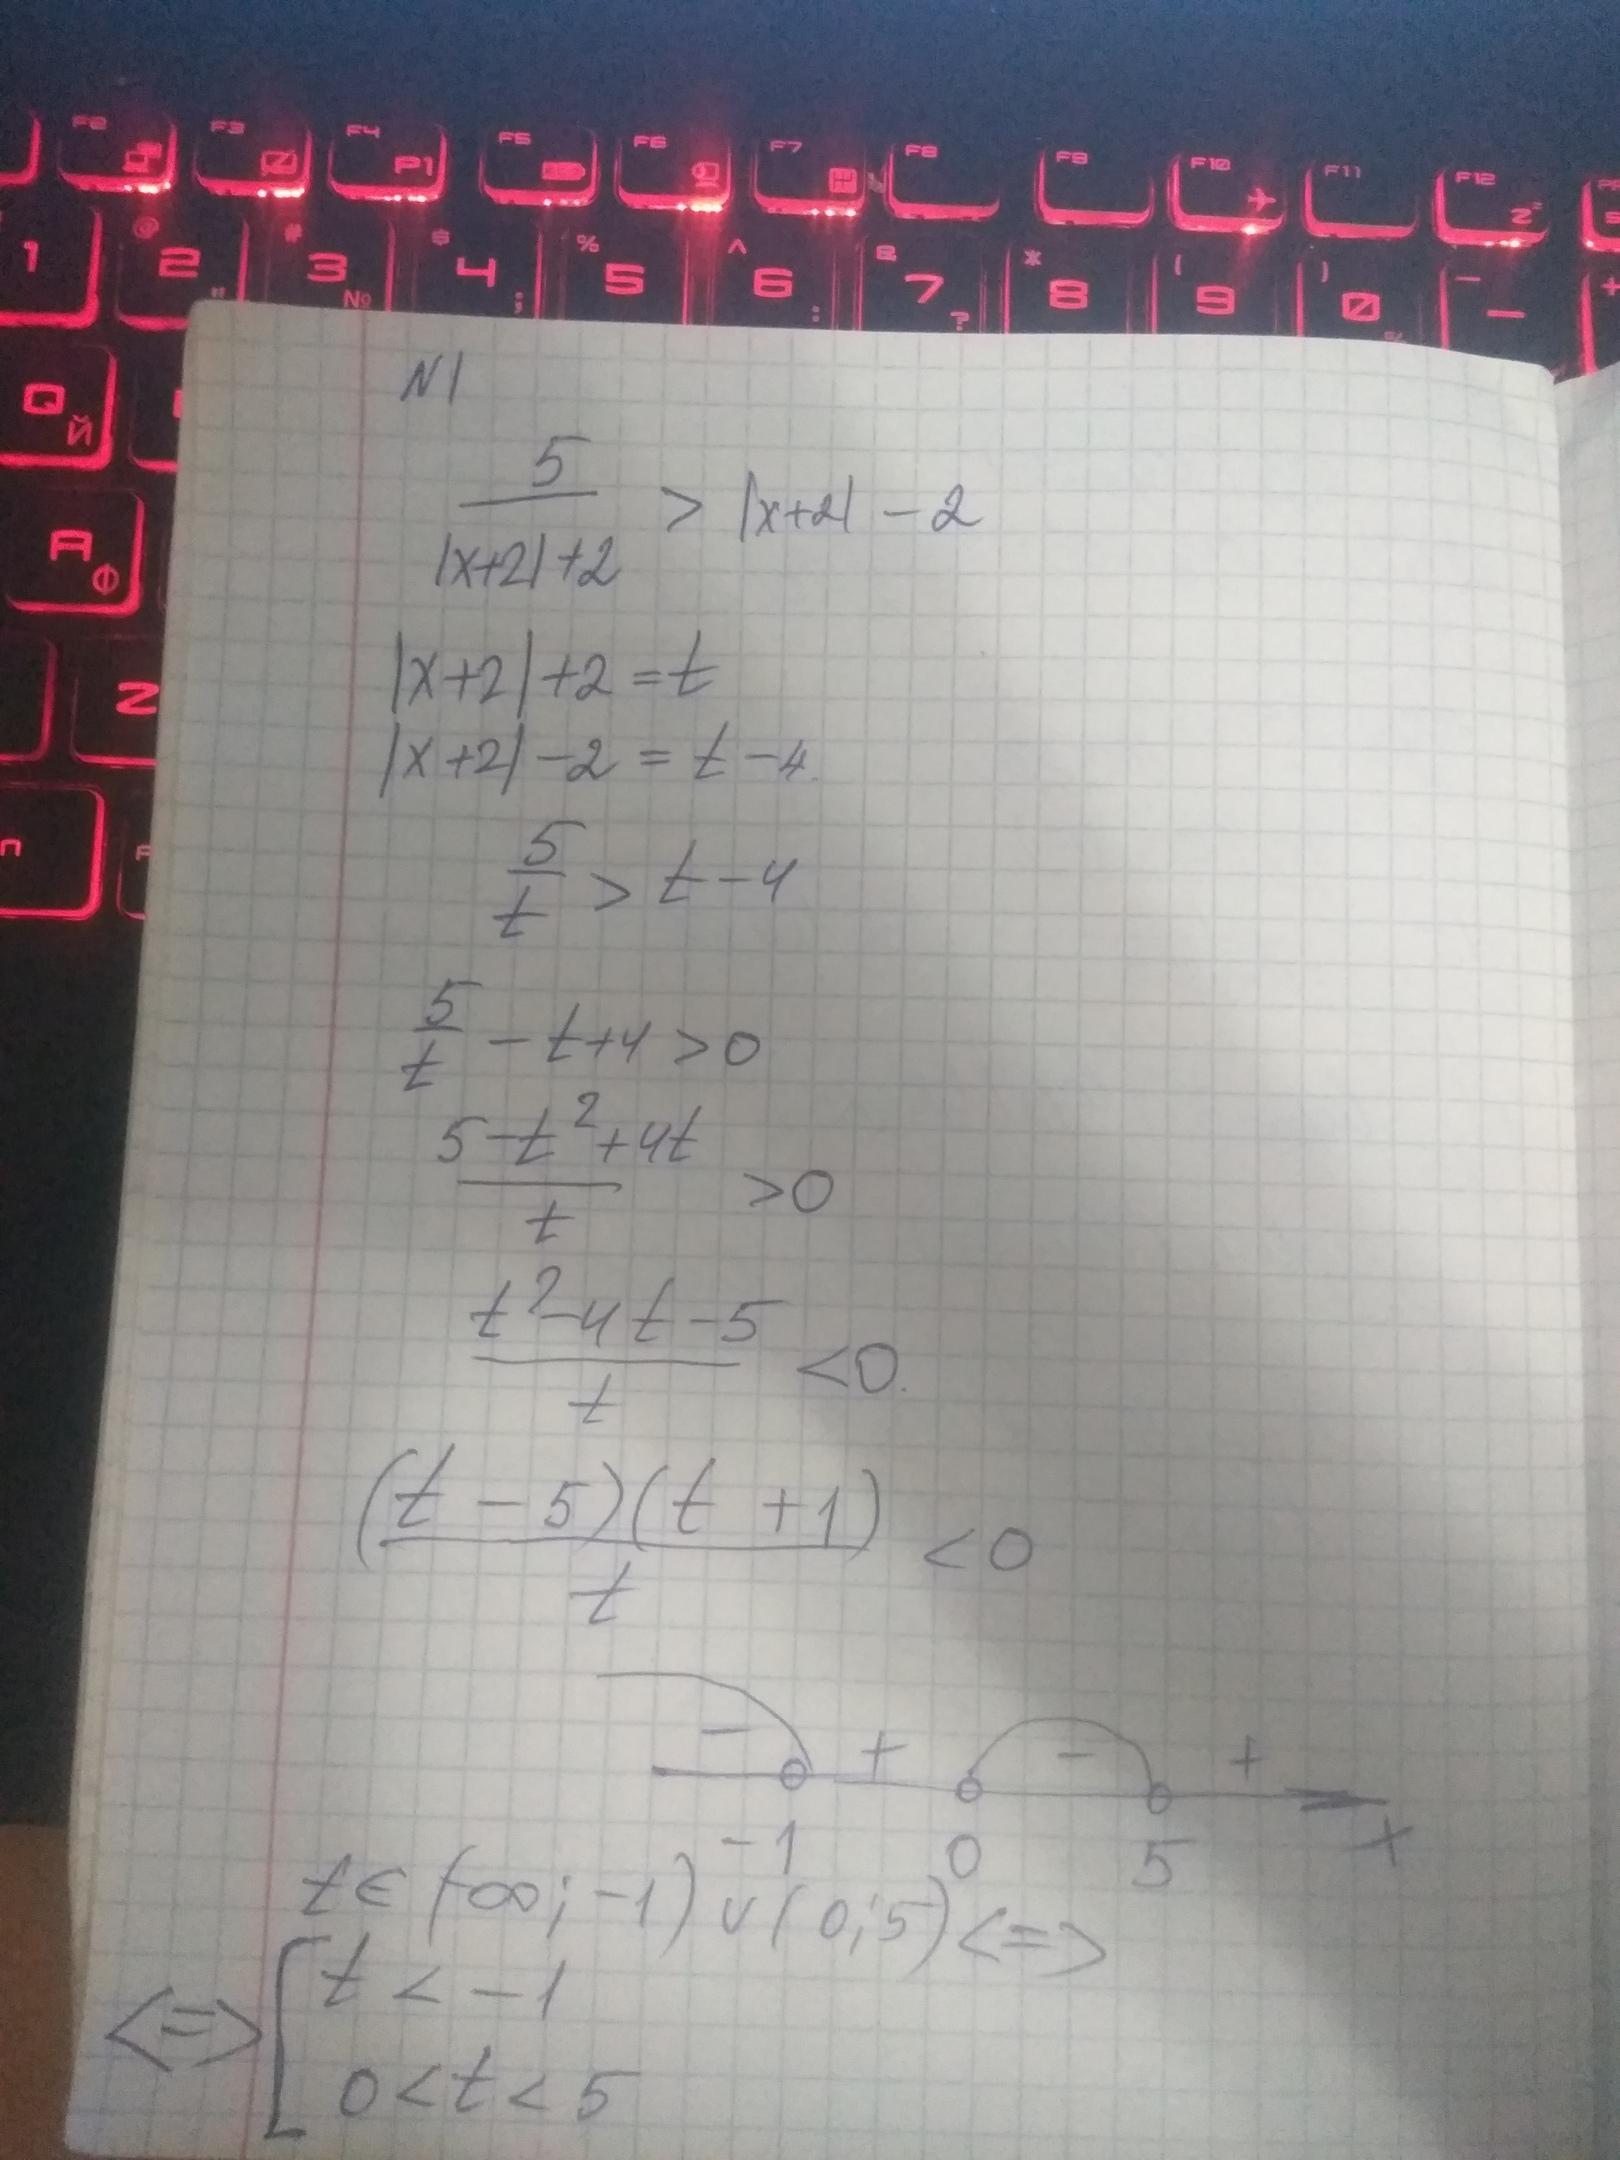 F2 F3 F4 P1 F5 F6 F7 F8 F9 F10 F11 F12
1 @ 2 " # 3 № $ 4 ; % 5 ^ 6 : & 7 ? * 8 ( 9 ) 0 _ - +
Q Й
A Ф
Z
N1
5
/
|x+2|+2 > |x+2| - 2
|x+2|+2=t
|x+2|-2=t-4.
5/t > t-4
5/t - t+4 >0
(5-t²+4t)/t >0
(t²-4t-5)/t <0.
(t-5)(t+1)/t <0
- + - +
-1 0 5 x
t∈(-∞;-1)∪(0;5)<=>
<=>[t<-1
0<t<5